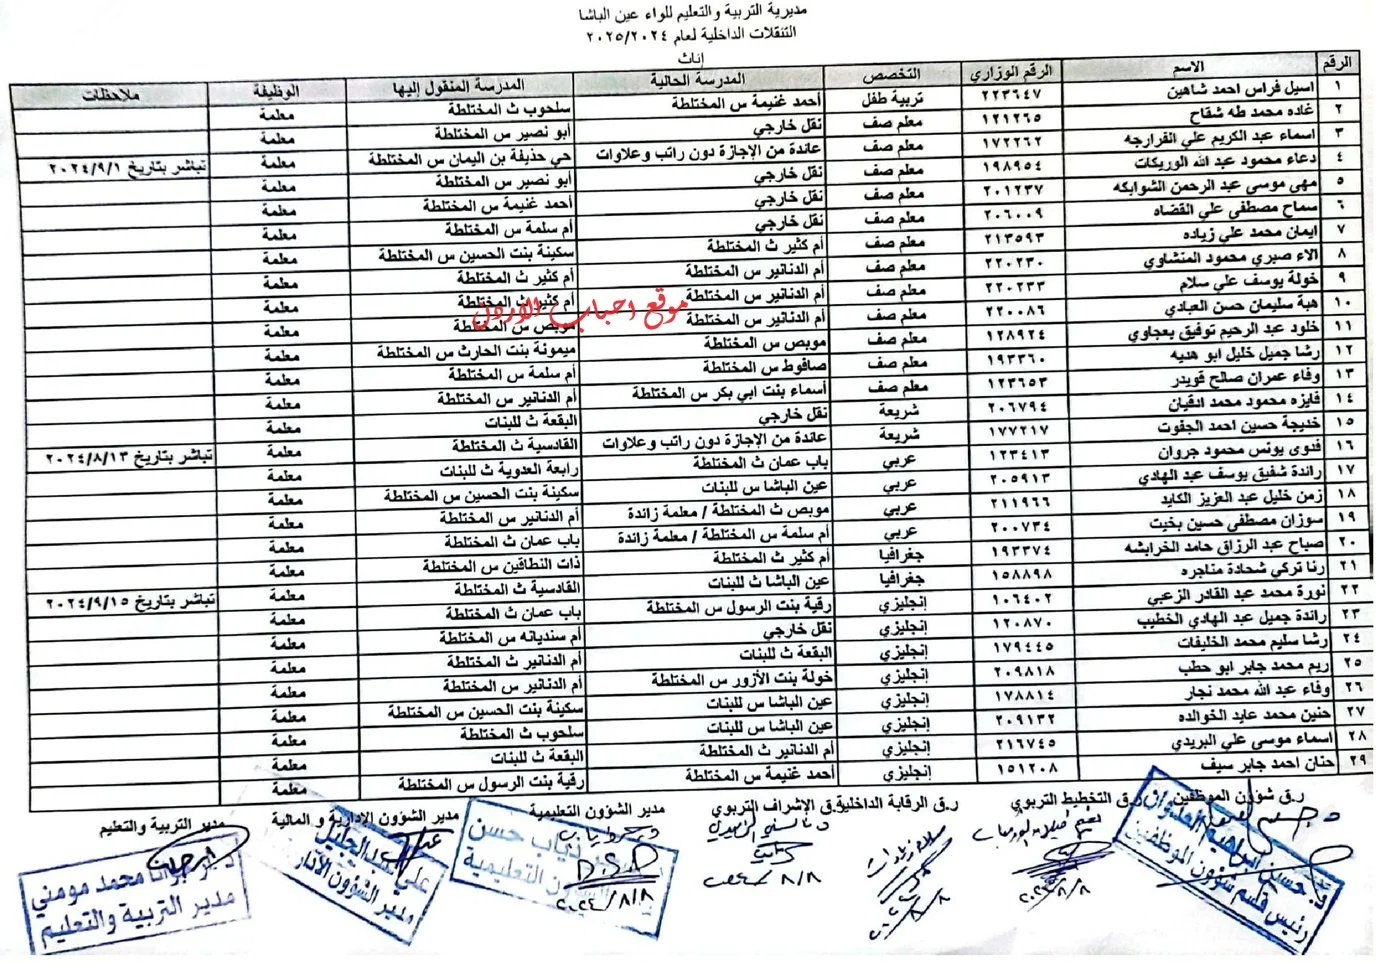 مديرية التربية والتعليم للواء عين الباشا
التنقلات الداخلية لعام ٢٠٢٥/٢٠٢٤
إناث
الرقم الاسم الرقم الوزاري التخصص المدرسة الحالية المدرسة المنقول إليها الوظيفة ملاحظات
١ اسيل فراس احمد شاهين ٢٢٣٦٤٧ تربية طفل أحمد غنيمة س المختلطة سلحوب ث المختلطة معلمة
٢ غاده محمد طه شقاح ١٢١٢٦٥ معلم صف نقل خارجي أبو نصير س المختلطة معلمة
٣ اسماء عبد الكريم علي الفرارجه ١٧٢٢٦٢ معلم صف عائدة من الإجازة دون راتب وعلاوات حي حذيفة بن اليمان س المختلطة معلمة تباشر بتاريخ ٢٠٢٤/٩/١
٤ دعاء محمود عبد الله الوريكات ١٩٨٩٥٤ معلم صف نقل خارجي أبو نصير س المختلطة معلمة
٥ مهى موسى عبد الرحمن الشوابكه ٢٠١٢٣٧ معلم صف نقل خارجي أحمد غنيمة س المختلطة معلمة
٦ سماح مصطفى علي القضاه ٢٠٦٠٠٩ معلم صف نقل خارجي أم سلمة س المختلطة معلمة
٧ ايمان محمد علي زياده ٢١٣٥٩٣ معلم صف أم كثير ث المختلطة سكينة بنت الحسين س المختلطة معلمة
٨ الاء صبري محمود المنشاوي ٢٢٠٢٣٠ معلم صف أم الدنانير س المختلطة أم كثير ث المختلطة معلمة
٩ خولة يوسف علي سلام ٢٢٠٢٣٣ معلم صف أم الدنانير س المختلطة أم كثير ث المختلطة معلمة
١٠ هبة سليمان حسن العبادي ٢٢٠٠٨٦ معلم صف أم الدنانير س المختلطة موبص س المختلطة معلمة
موقع احباب الاردن
١١ خلود عبد الرحيم توفيق يعجاوي ١٢٨٩٢٤ معلم صف موبص س المختلطة ميمونة بنت الحارث س المختلطة معلمة
١٢ رشا جميل خليل ابو هديه ١٩٣٣٦٠ معلم صف صافوط س المختلطة أم سلمة س المختلطة معلمة
١٣ وفاء عمران صالح قويدر ١٢٣٦٥٣ معلم صف أسماء بنت ابي بكر س المختلطة أم الدنانير س المختلطة معلمة
١٤ فايزه محمود محمد ادقيان ٢٠٦٧٩٤ شريعة نقل خارجي البقعة ث للبنات معلمة
١٥ خديجة حسين احمد الجفوت ١٧٧٢١٧ شريعة عائدة من الإجازة دون راتب وعلاوات القادسية ث المختلطة معلمة تباشر بتاريخ ٢٠٢٤/٨/١٣
١٦ فدوى يونس محمود جروان ١٢٣٤١٣ عربي باب عمان ث المختلطة رابعة العدوية ث للبنات معلمة
١٧ رائدة شفيق يوسف عبد الهادي ٢٠٥٩١٣ عربي عين الباشا س للبنات سكينة بنت الحسين س المختلطة معلمة
١٨ زمن خليل عبد العزيز الكايد ٢١١٩٦٦ عربي موبص ث المختلطة / معلمة زائدة أم الدنانير س المختلطة معلمة
١٩ سوزان مصطفى حسين بخيت ٢٠٠٧٣٤ عربي أم سلمة س المختلطة / معلمة زائدة باب عمان ث المختلطة معلمة
٢٠ صباح عبد الرزاق حامد الخرابشه ١٩٣٣٧٤ جغرافيا أم كثير ث المختلطة ذات النطاقين س المختلطة معلمة
٢١ رنا تركي شحادة مناجره ١٥٨٨٩٨ جغرافيا عين الباشا ث للبنات القادسية ث المختلطة معلمة تباشر بتاريخ ٢٠٢٤/٩/١٥
٢٢ نورة محمد عبد القادر الزعبي ١٠٦٤٠٢ إنجليزي رقية بنت الرسول س المختلطة باب عمان ث المختلطة معلمة
٢٣ رائدة جميل عبد الهادي الخطيب ١٢٠٨٧٠ إنجليزي نقل خارجي أم سنديانه س المختلطة معلمة
٢٤ رشا سليم محمد الخليفات ١٧٩٤٤٥ إنجليزي البقعة ث للبنات أم الدنانير ث المختلطة معلمة
٢٥ ريم محمد جابر ابو حطب ٢٠٩٨١٨ إنجليزي خولة بنت الأزور س المختلطة أم الدنانير س المختلطة معلمة
٢٦ وفاء عبد الله محمد نجار ١٧٨٨١٤ إنجليزي عين الباشا س للبنات سكينة بنت الحسين س المختلطة معلمة
٢٧ حنين محمد عايد الخوالده ٢٠٩١٣٢ إنجليزي عين الباشا س للبنات سلحوب ث المختلطة معلمة
٢٨ اسماء موسى علي البريدي ٢١٦٧٤٥ إنجليزي أم الدنانير ث المختلطة البقعة ث للبنات معلمة
٢٩ حنان احمد جابر سيف ١٥١٢٠٨ إنجليزي أحمد غنيمة س المختلطة رقية بنت الرسول س المختلطة معلمة
ر.ق شؤون الموظفين ر.ق التخطيط التربوي ر.ق الرقابة الداخلية ر.ق الإشراف التربوي مدير الشؤون التعليمية مدير الشؤون الإدارية و المالية مدير التربية والتعليم
د. حسين ابراهيم العدوان
رئيس قسم شؤون الموظفين
ذياب حسن
الشؤون التعليمية
٢٠٢٤/٨/٨
علي عبد الجليل
مدير الشؤون الادار
محمد مومني
مدير التربية والتعليم